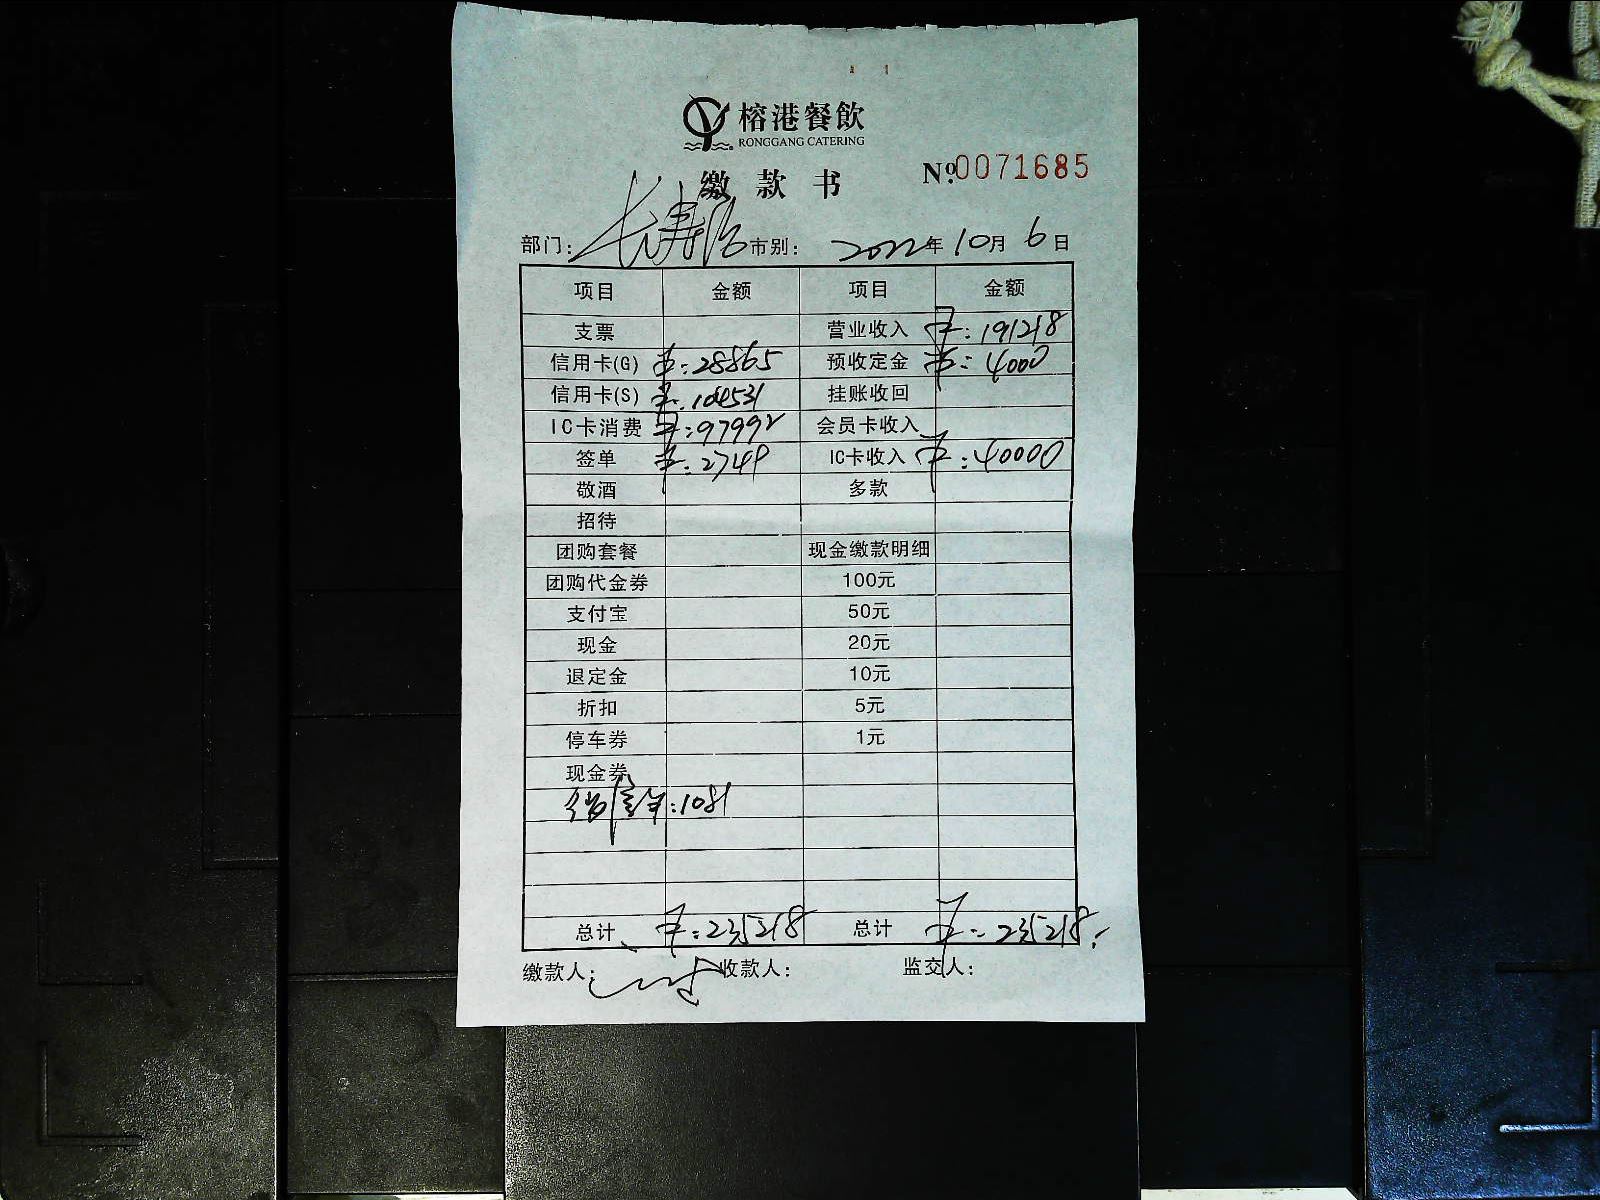 榕港餐飲
RONGGANG CATERING
缴款书
Nº.0071685
部门: 长寿路 市别: 2022年10月6日
项目 金额 项目 金额
支票 营业收入 ¥:191218
信用卡(G) ¥:28865 预收定金 ¥:4000
信用卡(S) ¥:104531 挂账收回
IC卡消费 ¥:97992 会员卡收入
签单 ¥:2749 IC卡收入 ¥:40000
敬酒 多款
招待
团购套餐 现金缴款明细
团购代金券 100元
支付宝 50元
现金 20元
退定金 10元
折扣 5元
停车券 1元
现金券
¥:1081
总计 ¥:235218 总计 ¥:235218
缴款人: 收款人: 监交人: